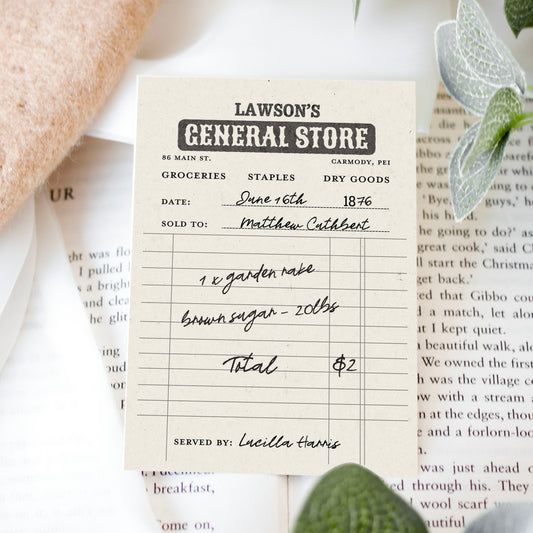 LAWSON'S
GENERAL STORE
86 MAIN ST. CARMODY, PEI
GROCERIES STAPLES DRY GOODS
DATE: June 16th 1876
SOLD TO: Matthew Cuthbert
1 x garden rake
brown sugar - 20lbs
Total $2
SERVED BY: Lucilla Harris
UR
ht was flo
I pulled
and clea
the glit
breakfast,
"Come on,
'Bye,
guys,' he
his head
going to do?' as
great cook,' said C
ll start the Christma
get back.'
ed that Gibbo cou
d a match, let alo
t I kept quiet.
a beautiful walk, alo
We owned the first
h was the village c
w with a stream a
at the edges, thou
e and a forlorn-loo
was just ahead o
ed through his. They
l wool scarf w
beautiful